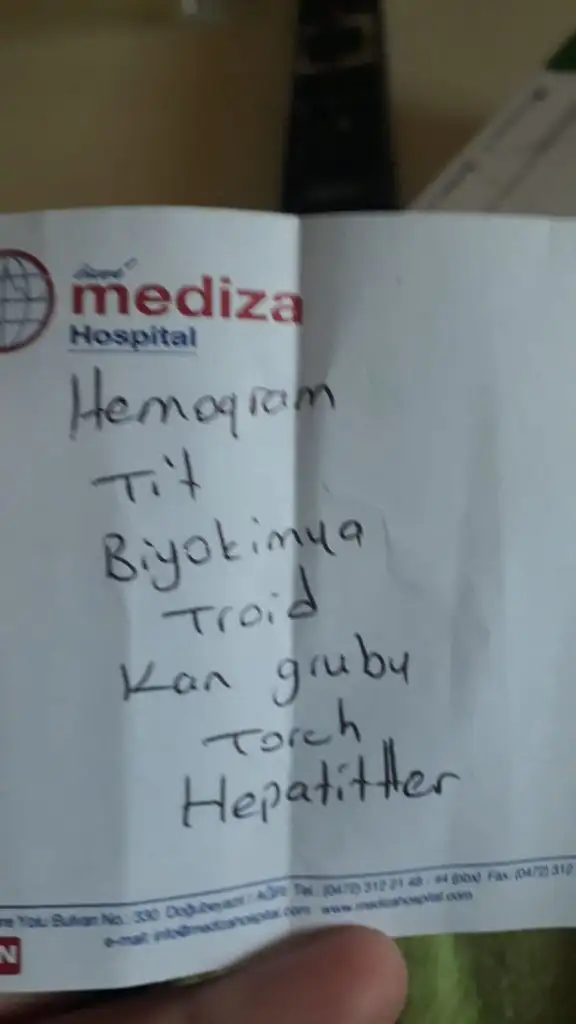 mediza
Hospital
Hemogram
Tit
Biyokimya
Troid
Kan grubu
Torch
Hepatittler
Yolu Bulvarı No: 330 Doğubeyazıt / AĞRI Tel.: (0472) 312 21 48 - 44 (pbx) Fax: (0472) 312
e-mail: info@medizahospital.com www.medizahospital.com
N